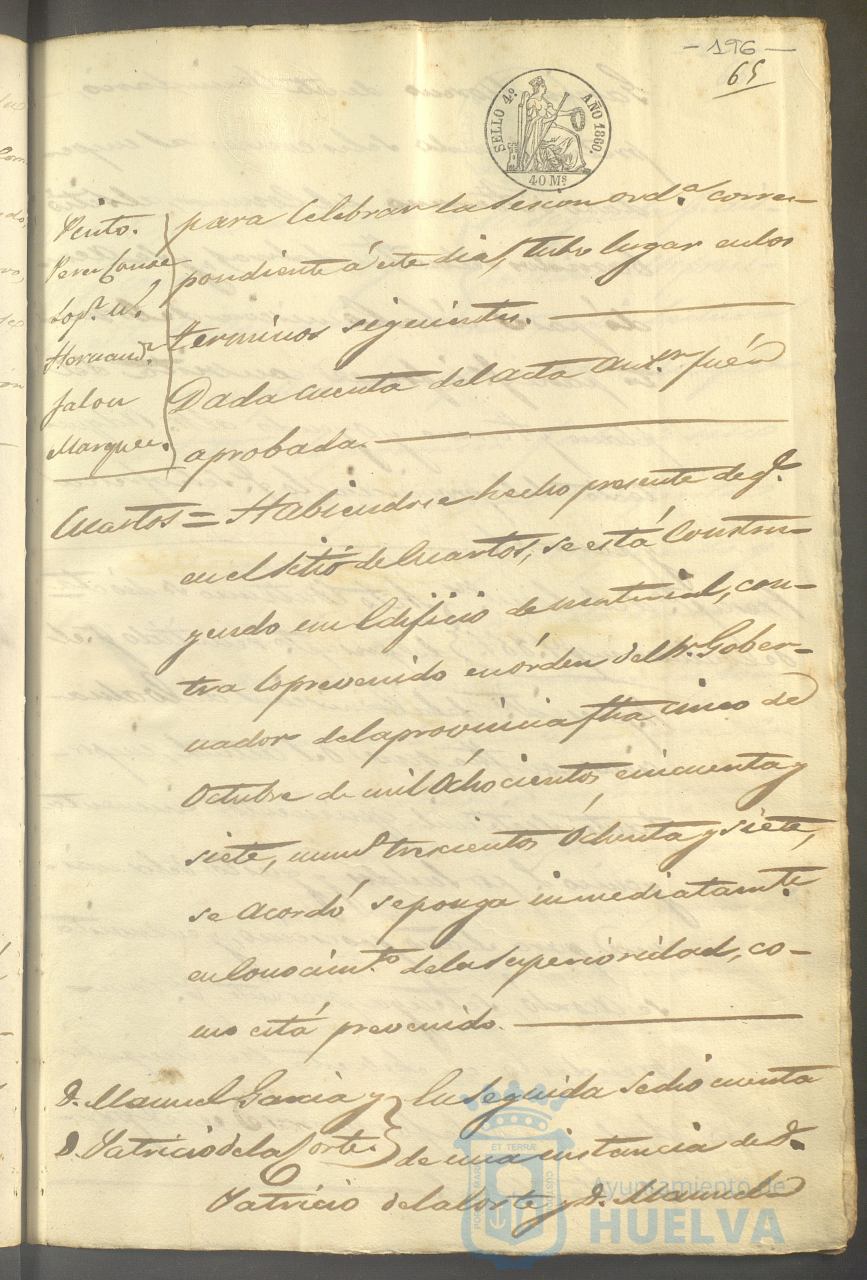 - 196 -
65
SELLO 4º. AÑO 1860.
40 Ms.
Pinto.
Perez Conde
Lopz. M.
Hernandz.
Jalon
Marquez.
para Celebrar la Sesion ordª. corres-
pondiente á este dia, tubo lugar en los
terminos siguientes.
Dada cuenta del acta antr. fué
aprobada.
Cuartos = Habiendose hecho presente de q.e
en el sitio de Cuartos, se está Constru-
yendo un Edificio de material, con-
tra lo prevenido en órden del Sr. Gober-
nador de la provincia fha cinco de
Octubre de mil Ochocientos cincuenta y
siete, numº. trescientos Ochenta y siete,
se acordó se ponga inmediatamte.
en Conocimto. de la Superioridad, co-
mo está prevenido.
D. Manuel Garcia y
D. Patricio de la Corte.
En Seguida se dio cuenta
de una instancia de D.
Patricio de la Corte y D. Manuel
Ayuntamiento de
HUELVA